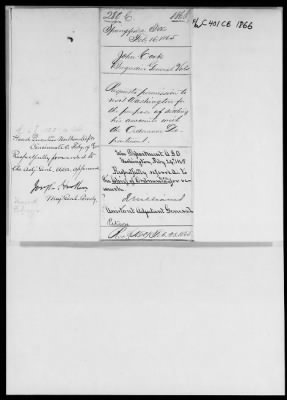 280 C 1865
W C 401 CE 1866
Springfield Ills
Feb. 16, 1865
John Cook
Brigadier General Vols
Requests permission to
visit Washington for
the purpose of settling
his accounts with
the Ordnance De-
partment.
Head Quarters Northern Dept
Cincinnati O.
Respectfully forwarded to
the Adjt Genl.
Joseph Hooker
Maj Genl Comdg
War Department A G O
Washington, Feby 24 1865
Respectfully referred to
the Chief of Ordnance for re-
mark.
Assistant Adjutant General
Return